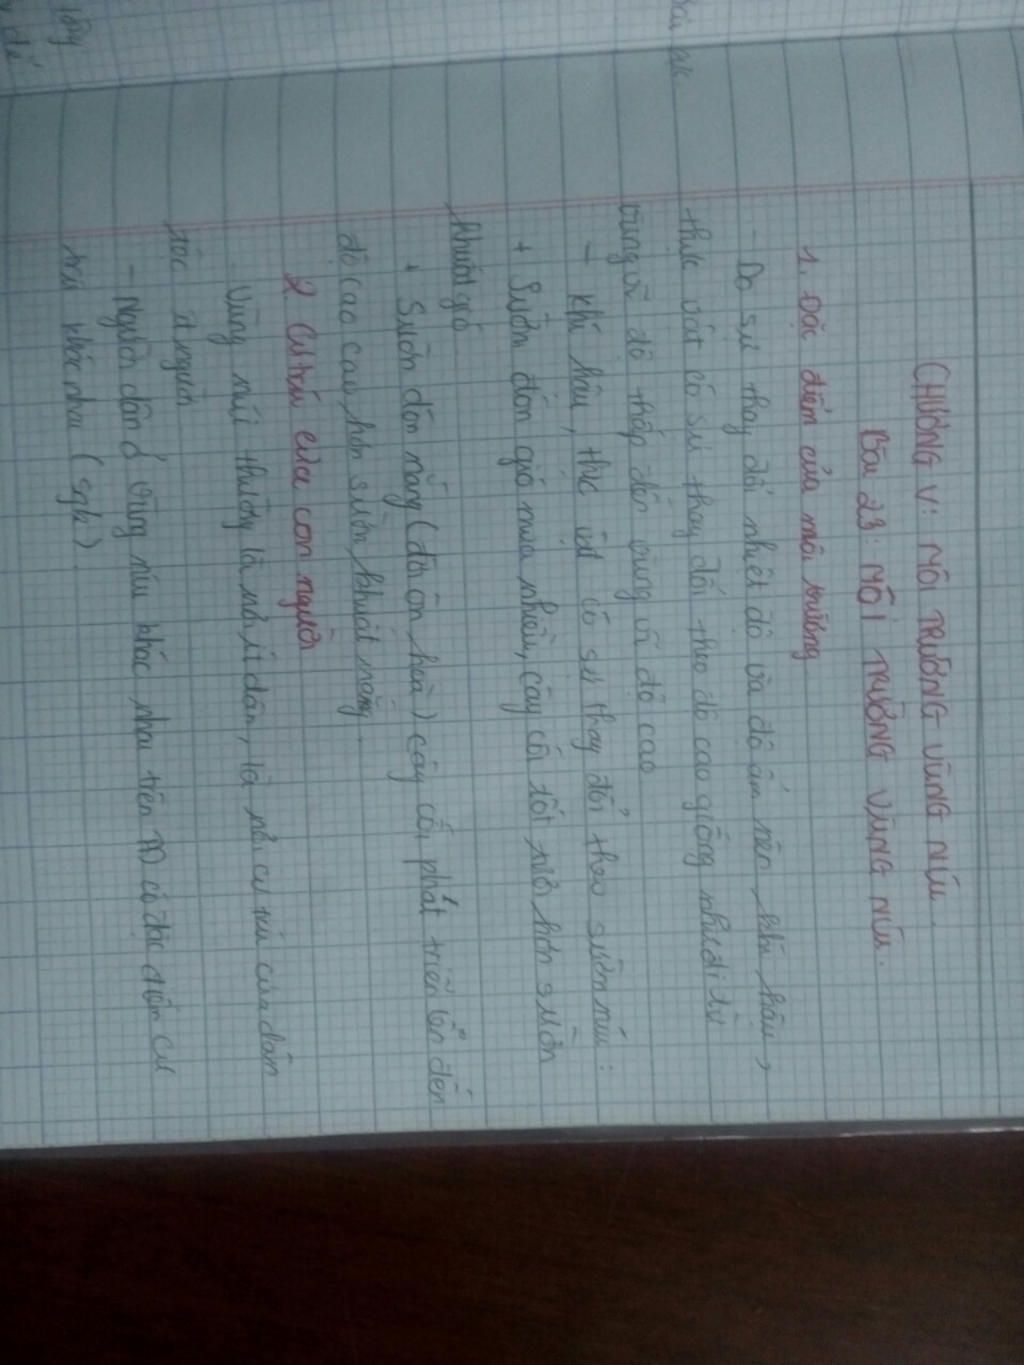 CHƯƠNG V: MÔI TRƯỜNG VÙNG NÚI.
Bài 23: MÔI TRƯỜNG VÙNG NÚI.
1. Đặc điểm của môi trường
- Do sự thay đổi nhiệt độ và độ ẩm nên khí hậu,
thực vật có sự thay đổi theo độ cao giống như đi từ
vùng vĩ độ thấp đến vùng vĩ độ cao
- Khí hậu, thực vật có sự thay đổi theo sườn núi:
+ Sườn đón gió mưa nhiều, cây cối tốt tươi hơn sườn
khuất gió
+ Sườn đón nắng (đới ôn hoà) cây cối phát triển lên đến
độ cao cao hơn sườn khuất nắng.
2. Cư trú của con người
- Vùng núi thường là nơi ít dân, là nơi cư trú của dân
tộc ít người
- Người dân ở vùng núi khác nhau trên TĐ có đặc điểm cư
trú khác nhau (sgk)